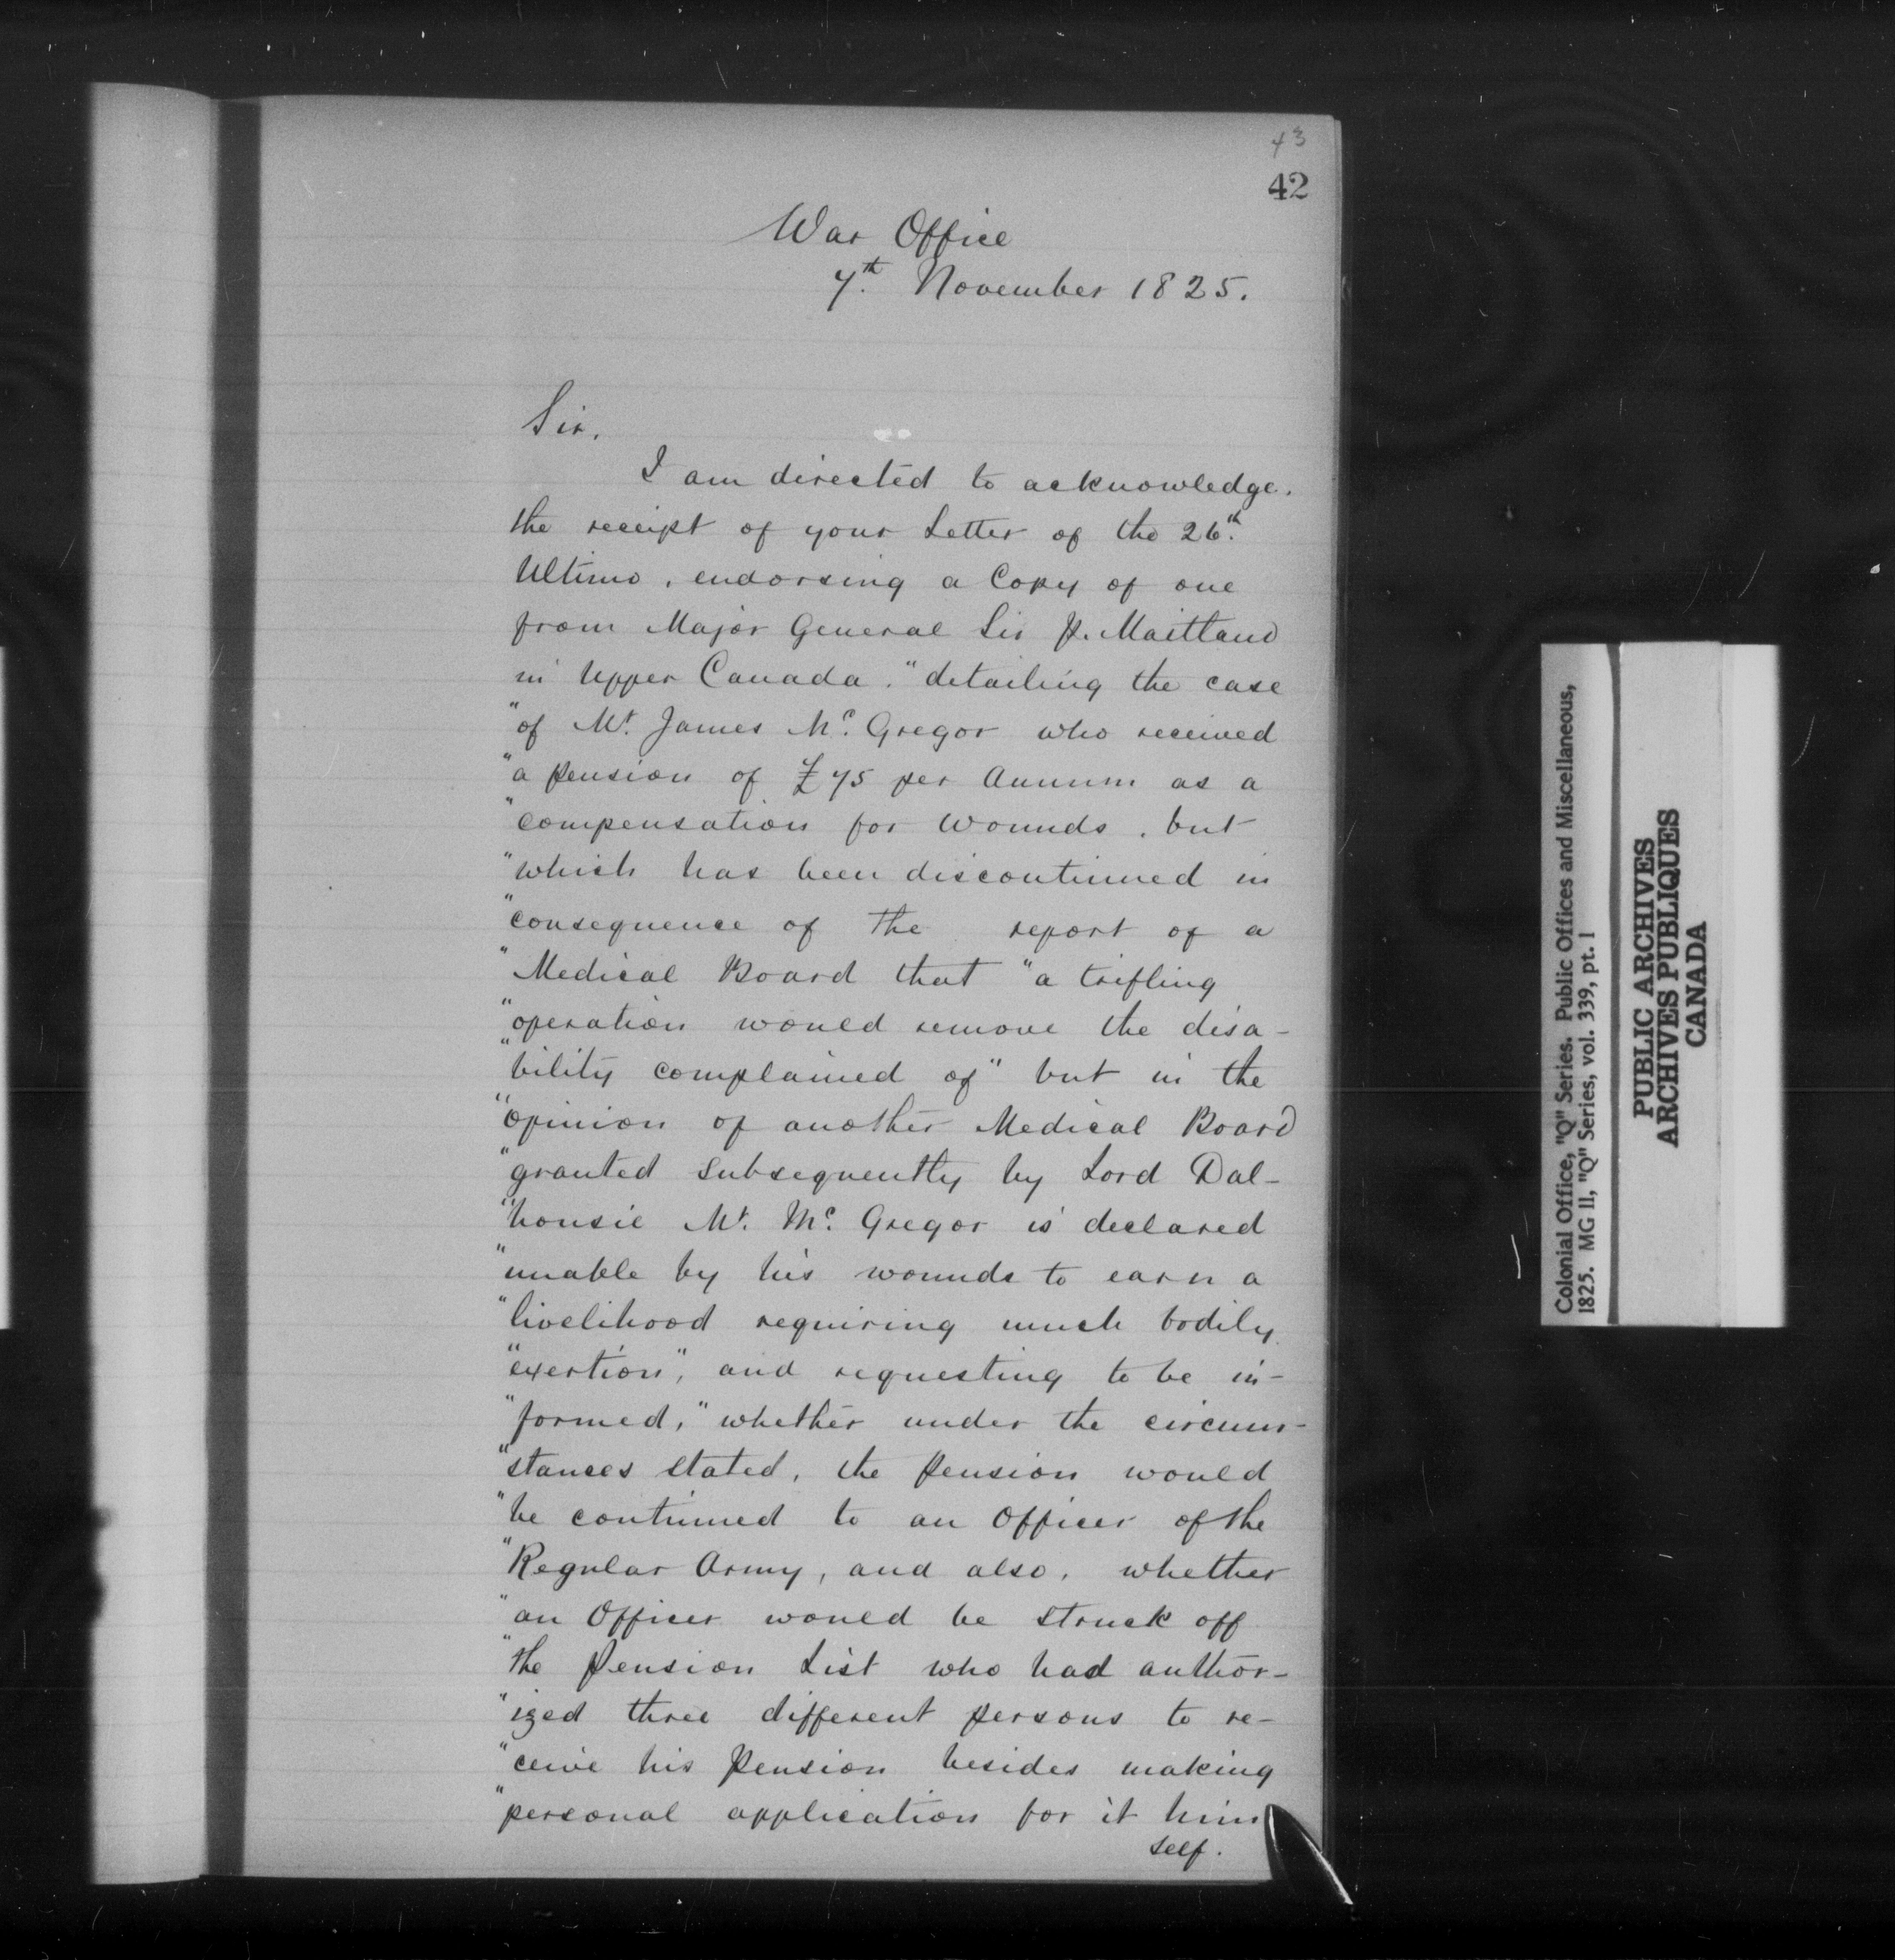 43
42
War Office
7th November 1825.
Sir,
I am directed to acknowledge.
the receipt of your Letter of the 26th
Ultimo, endorsing a Copy of one
from Major General Sir P. Maitland
in Upper Canada. "detailing the case
"of Mr. James Mc. Gregor who received
"a pension of £75 per Annum as a
"compensation for Wounds, but
"which has been discontinued in
"consequence of the report of a
"Medical Board that "a trifling
"operation would remove the disa-
"bility complained of" but in the
"opinion of another Medical Board
"granted subsequently by Lord Dal-
"housie Mr. Mc. Gregor is declared
"unable by his wounds to earn a
"livelihood requiring much bodily
"exertion", and requesting to be in-
"formed," whether under the circum-
"stances stated, the pension would
"be continued to an Officer of the
"Regular Army, and also, whether
"an Officer would be struck off
"the Pension List who had author-
"ized three different persons to re-
"ceive his Pension besides making
"personal application for it him
self.
Colonial Office, "Q" Series. Public Offices and Miscellaneous,
1825. MG II, "Q" Series, vol. 339, pt. 1
PUBLIC ARCHIVES
ARCHIVES PUBLIQUES
CANADA